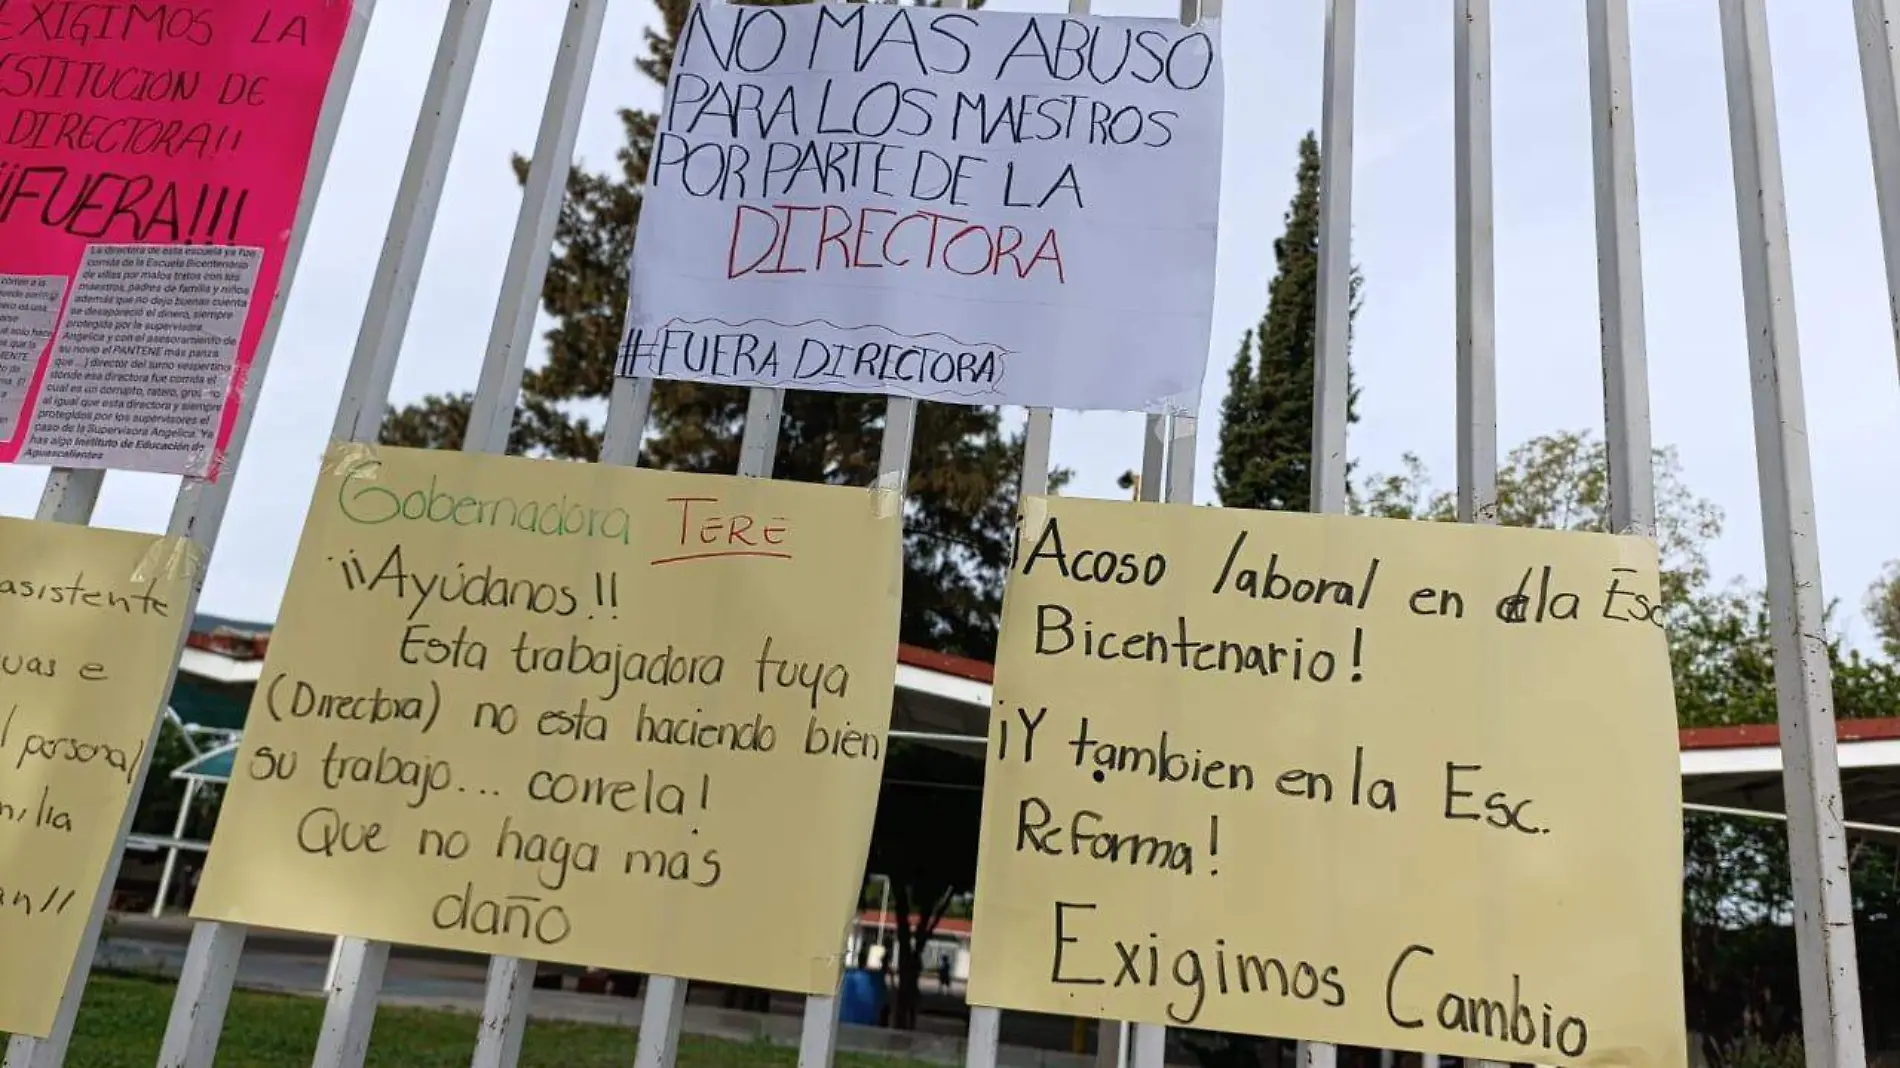 EXIGIMOS LA
ESTITUCION DE
DIRECTORA!!
¡¡FUERA!!!
La directora de esta escuela ya fue
corrida de la Escuela Bicentenario
de villas por malos tratos con los
maestros, padres de familia y niños
además que no dejo buenas cuenta
se desapareció el dinero, siempre
protegida por la supervisora
Angelica y con el asesoramiento de
su novio el PANTENE más panza
que ...) director del turno vespertino
donde esa directora fue corrida el
cual es un corrupto, ratero, 
al igual que esta directora y siempre
protegidos por los supervisores el
caso de la Supervisora Angelica. Ya
has algo Instituto de Educación de
Aguascalientes
NO MAS ABUSO
PARA LOS MAESTROS
POR PARTE DE LA
DIRECTORA
#FUERA DIRECTORA
asistente
uas e
personal
ilia
an!!
Gobernadora TERE
¡¡Ayúdanos!!
Esta trabajadora tuya
(Directora) no esta haciendo bien
su trabajo... correla!
Que no haga mas
daño
¡Acoso laboral en la Esc
Bicentenario!
¡Y tambien en la Esc.
Reforma!
Exigimos Cambio